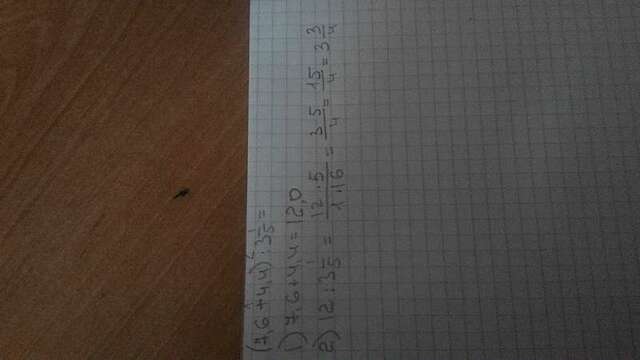 (7,6 + 4,4) : 3 1/5 =
1) 7,6 + 4,4 = 12,0
2) 12 : 3 1/5 = 12 · 5/1 · 16 = 3 5/4 = 15/4 = 3 3/4